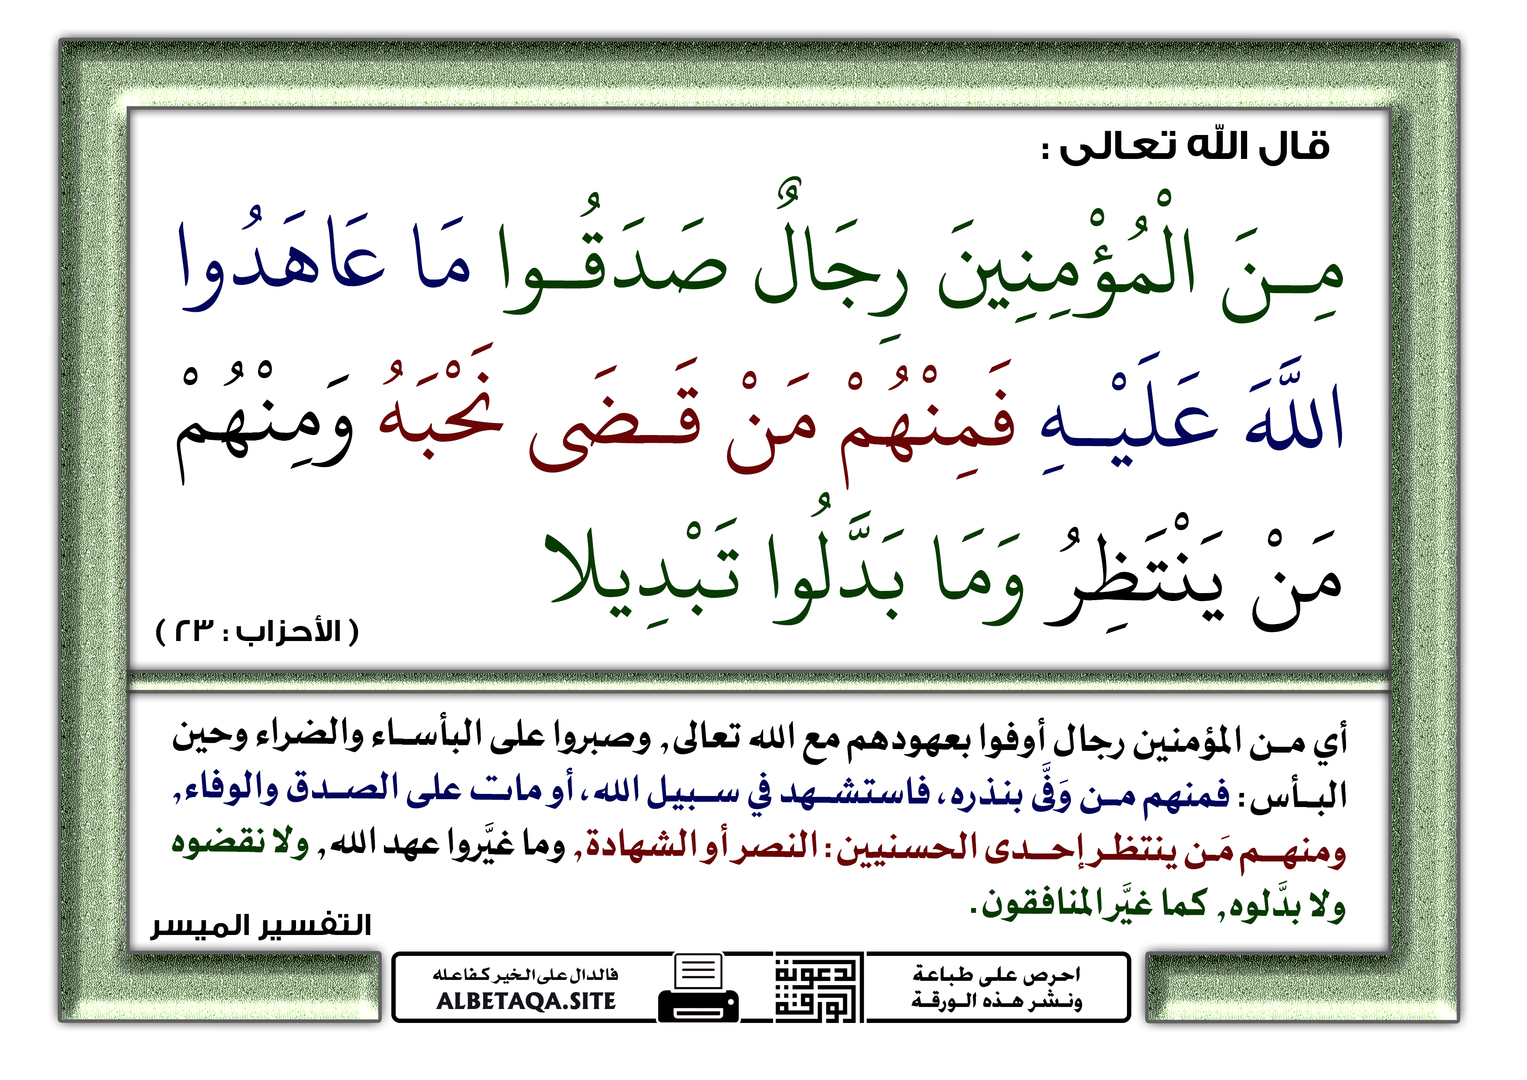 قال الله تعالى :
مِـنَ الْمُؤْمِنِينَ رِجَالٌ صَدَقُـوا مَا عَاهَدُوا
اللَّهَ عَلَيْـهِ فَمِنْهُمْ مَنْ قَـضَى نَحْبَهُ وَمِنْهُمْ
مَنْ يَنْتَظِرُ وَمَا بَدَّلُوا تَبْدِيلا
( الأحزاب : ٢٣ )
أي مـن المؤمنين رجال أوفوا بعهودهم مع الله تعالى, وصبروا على البأسـاء والضراء وحين
البـأس: فمنهم مـن وَفَّى بنذره، فاستشـهد في سـبيل الله، أو مات على الصـدق والوفاء,
ومنهـم مَـن ينتظـر إحـدى الحسنيين: النصر أو الشهادة, وما غيَّروا عهد الله, ولا نقضوه
ولا بدَّلوه, كما غيَّر المنافقون.
التفسير الميسر
احرص على طباعة
ونـشر هـذه الـورقـة
الدعوية
الورقة
فالدال على الخير كـفاعله
ALBETAQA.SITE